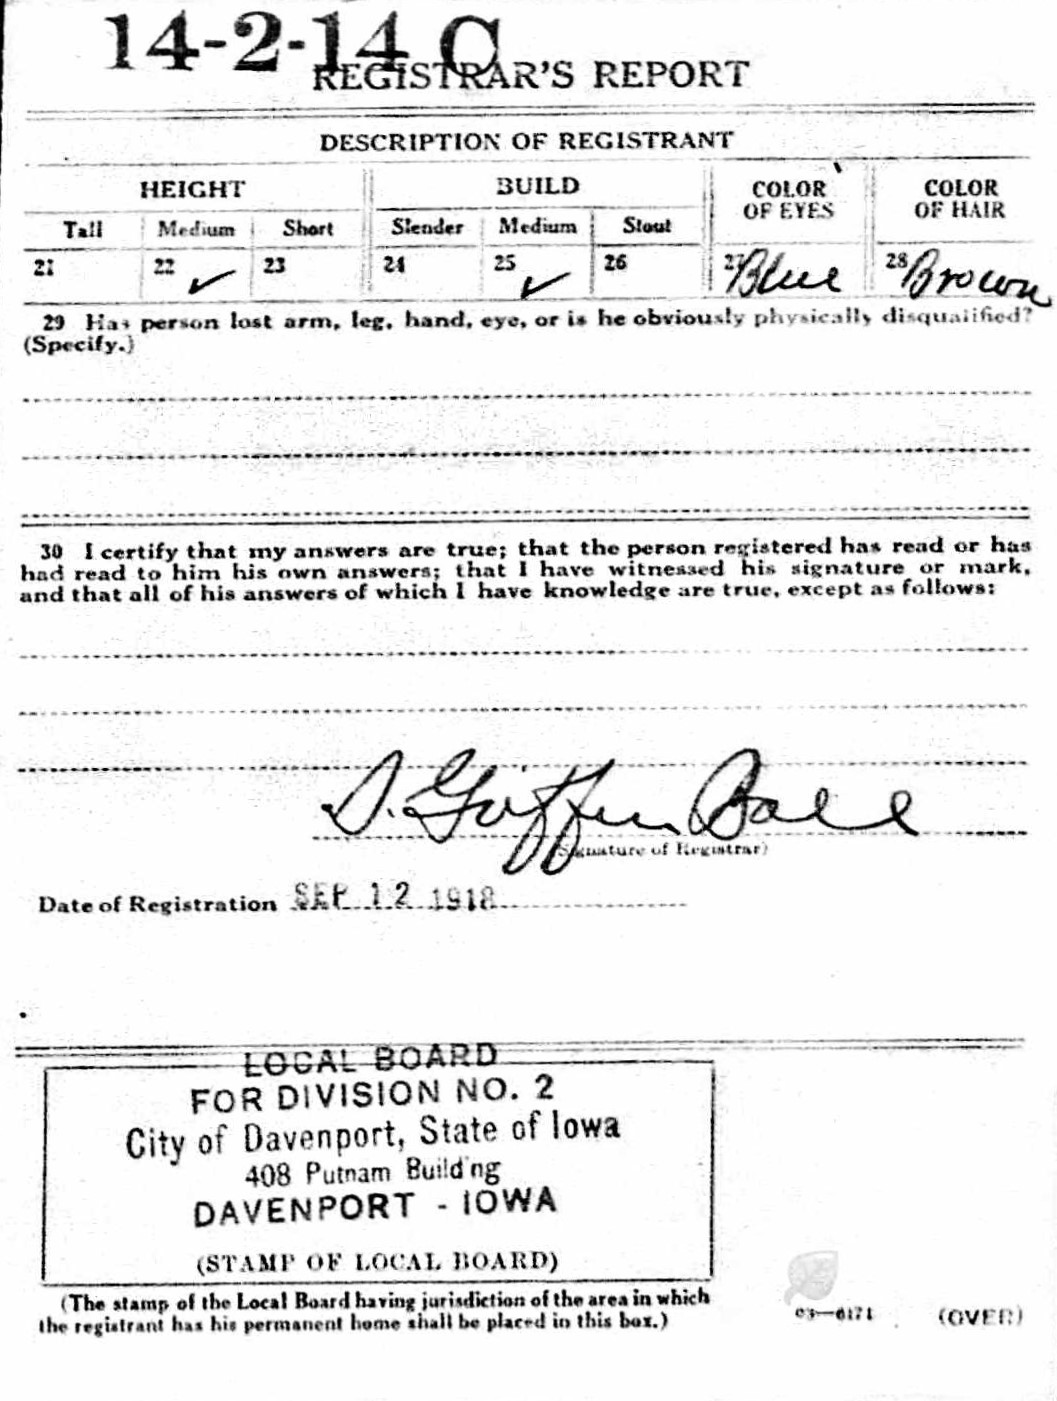 14-2-14 C
REGISTRAR'S REPORT
DESCRIPTION OF REGISTRANT
HEIGHT BUILD COLOR OF EYES COLOR OF HAIR
Tall Medium Short Slender Medium Stout
21 22 ✓ 23 24 25 ✓ 26 27 Blue 28 Brown
29 Has person lost arm, leg, hand, eye, or is he obviously physically disqualified?
(Specify.)
30 I certify that my answers are true; that the person registered has read or has
had read to him his own answers; that I have witnessed his signature or mark,
and that all of his answers of which I have knowledge are true, except as follows:
Griffin Ball
(Signature of Registrar)
Date of Registration SEP 12 1918
LOCAL BOARD
FOR DIVISION NO. 2
City of Davenport, State of Iowa
408 Putnam Building
DAVENPORT - IOWA
(STAMP OF LOCAL BOARD)
(The stamp of the Local Board having jurisdiction of the area in which
the registrant has his permanent home shall be placed in this box.)
03—6171 (OVER)